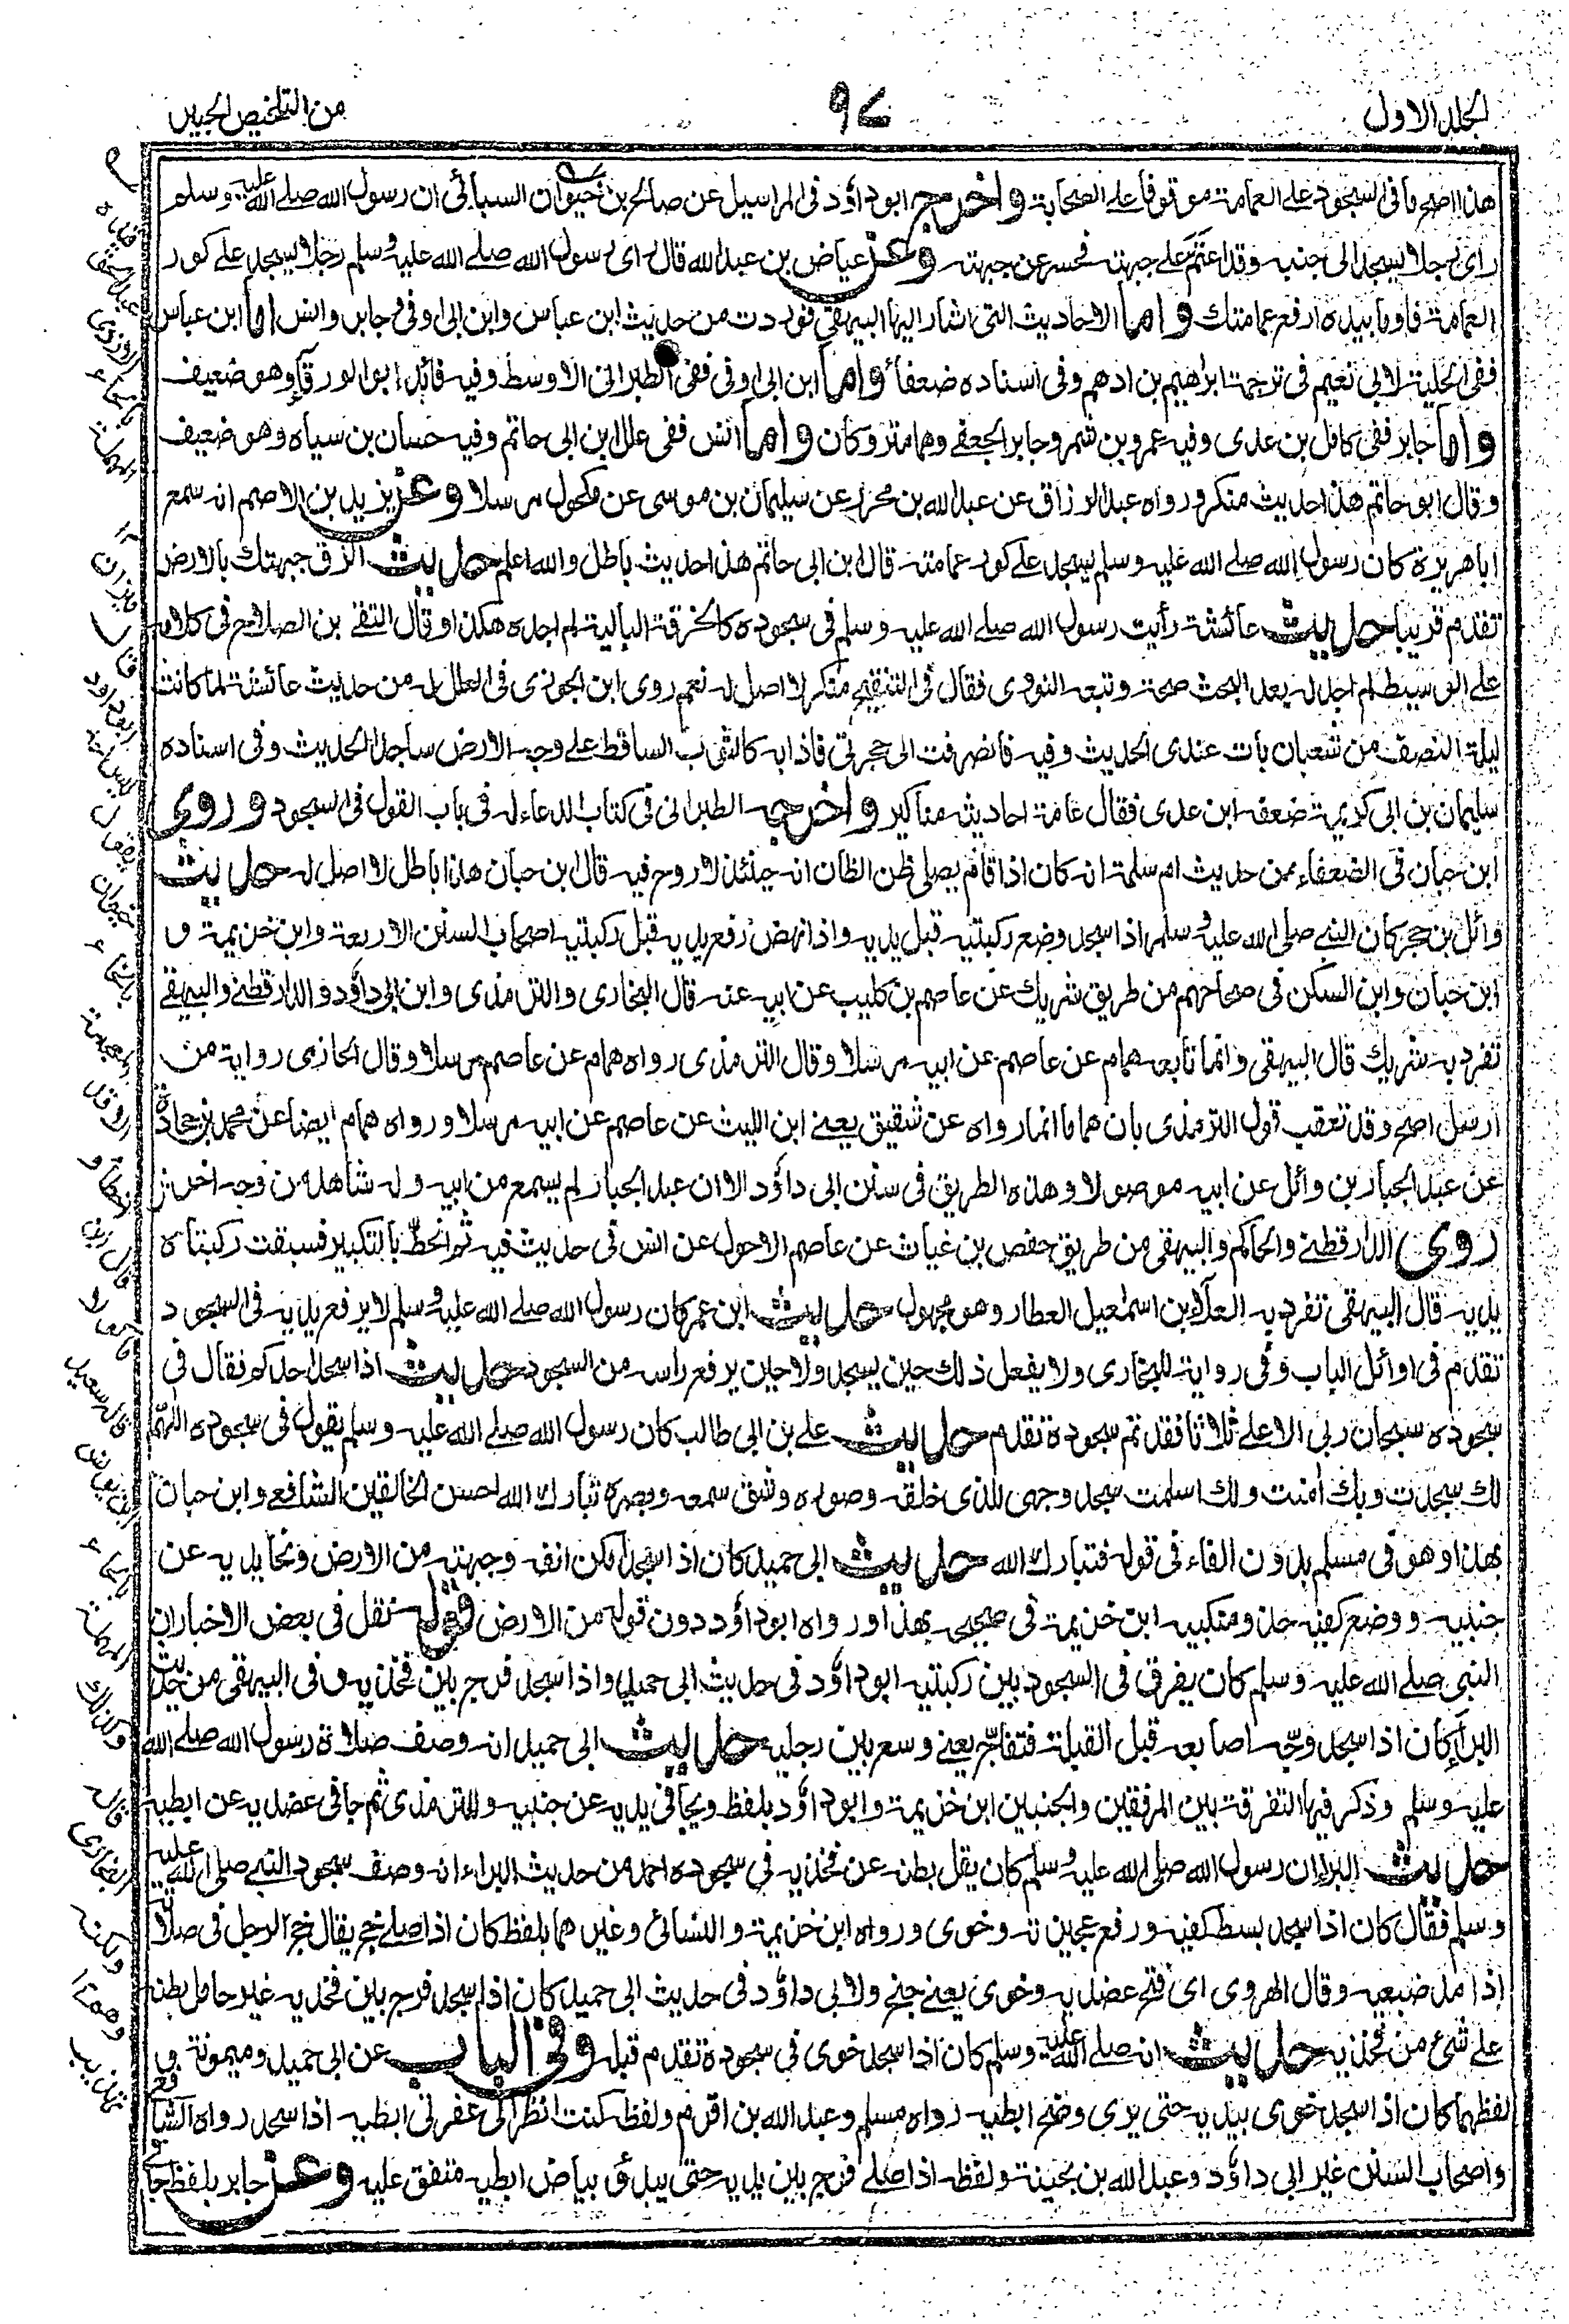 الجلد الاول
٩٧
من التلخيص الحبير
هذا اصح ما فى السجود على العمامة موقوفا على الصحابة واخرج ابو داؤد فى المراسيل عن صالح بن خيوان السبائى ان رسول الله صلے الله عليه وسلم
راى رجلا يسجد الى جنبه وقد اعتم على جبهته فحسر عن جبهته وعن عياض بن عبد الله قال راى رسول الله صلے الله عليه وسلم رجلا يسجد على كور
العمامة فاومأ بيده ارفع عمامتك واما الاحاديث التى اشار اليها البيهقى فوردت من حديث ابن عباس وابن ابى اوفى وجابر وانس اما ابن عباس
ففى الحلية لابى نعيم فى ترجمة ابراهيم بن ادهم وفى اسناده ضعفا واما ابن ابى اوفى ففى الطبرانى الاوسط وفيه فائد ابو الورقآء وهو ضعيف
واما جابر ففى كامل بن عدى وفيه عمرو بن شمر وجابر الجعفے وهما متروكان واما انس ففى علل ابن ابى حاتم وفيه حسان بن سياه وهو ضعيف
وقال ابو حاتم هذا حديث منكر ورواه عبد الرزاق عن عبد الله بن محرر عن سليمان بن موسى عن مكحول مرسلا وعن يزيد بن الاصم انه سمع
ابا هريرة كان رسول الله صلے الله عليه وسلم يسجد على كور عمامته قال ابن ابى حاتم هذا حديث باطل والله اعلم حديث الزق جبهتك بالارض
تقدم قريبا حديث عائشة رأيت رسول الله صلے الله عليه وسلم فى سجوده كالخرقة البالية لم اجده هكذا وقال التقے بن الصلاح فى كلامه
على الوسيط لم اجد له بعد البحث صحة وتبعه النووى فقال فى التنقيح منكر لا اصل له نعم روى ابن الجوزى فى العلل له من حديث عائشة لما كانت
ليلة النصف من شعبان بات عندى الحديث وفيه فانصرفت الى حجرتى فاذا به كالثوب الساقط على وجه الارض ساجدا الحديث وفى اسناده
سليمان بن ابى كريمة ضعفه ابن عدى فقال عامة احاديثه مناكير واخرجه الطبرانى فى كتاب الدعاء له فى باب القول فى السجود وروى
ابن حبان فى الضعفاء من حديث ام سلمة انه كان اذا قام يصلى ظن الظان انه جسد لا روح فيه قال ابن حبان هذا باطل لا اصل له حديث
وائل بن حجر كان النبے صلى الله عليه وسلم اذا سجد وضع ركبتيه قبل يديه واذا نهض رفع يديه قبل ركبتيه اصحاب السنن الاربعة وابن خزيمة و
ابن حبان وابن السكن فى صحاحهم من طريق شريك عن عاصم بن كليب عن ابيه عنه قال البخارى والترمذى وابن ابى داؤد والدارقطنے والبيهقے
تفرد به شريك قال البيهقى وانما تابعه همام عن عاصم عن ابيه مرسلا وقال الترمذى رواه همام عن عاصم مرسلا وقال الحازمى رواية من
ارسل اصح وقد تعقب قول الترمذى بان هماما انما رواه عن شقيق يعنے ابن الليث عن عاصم عن ابيه مرسلا ورواه همام ايضا عن محمد بن جحادة
عن عبد الجبار بن وائل عن ابيه موصولا وهذه الطريق فى سنن ابى داؤد الا ان عبد الجبار لم يسمع من ابيه وله شاهد من وجه اخر
روى الدارقطنے والحاكم والبيهقى من طريق حفص بن غياث عن عاصم الاحول عن انس فى حديث فيه ثم انحط بالتكبير فسبقت ركبتاه
يديه قال البيهقى تفرد به العلآء بن اسمٰعيل العطار وهو مجهول حديث ابن عمر كان رسول الله صلے الله عليه وسلم لا يرفع يديه فى السجود
تقدم فى اوائل الباب وفى رواية للبخارى ولا يفعل ذلك حين يسجد ولا حين يرفع راسه من السجود حديث اذا سجد احدكم فقال فى
سجوده سبحان ربى الاعلے ثلاثا فقد تم سجوده تقدم حديث على بن ابى طالب كان رسول الله صلے الله عليه وسلم يقول فى سجوده اللّٰهم
لك سجدت وبك آمنت ولك اسلمت سجد وجهى للذى خلقه وصوره وشق سمعه وبصره تبارك الله احسن الخالقين الشافعے وابن حبان
بهذا وهو فى مسلم بدون الفاء فى قوله فتبارك الله حديث ابى حميد كان اذا سجد امكن انفه وجبهته من الارض ونحا يديه عن
جنبيه ووضع كفيه حذو منكبيه ابن خزيمة فى صحيحه بهذا ورواه ابو داؤد دون قوله من الارض قوله نقل فى بعض الاخبار ان
النبى صلے الله عليه وسلم كان يفرق فى السجود بين ركبتيه ابو داؤد فى حديث ابى حميد واذا سجد فرج بين فخذيه وفى البيهقى من حديث
البرآء كان اذا سجد وجّه اصابعه قبل القبلة فتفاجّ يعنے وسع بين رجليه حديث ابى حميد انه وصف صلاة رسول الله صلے الله
عليه وسلم وذكر فيها التفرقة بين المرفقين والجنبين ابن خزيمة وابو داؤد بلفظ ويجافى يديه عن جنبيه وللترمذى ثم جافى عضديه عن ابطيه
حديث البراء ان رسول الله صلى الله عليه وسلم كان يقل بطنه عن فخذيه فى سجوده احمد من حديث البراء انه وصف سجود النبے صلى الله عليه
وسلم فقال كان اذا سجد بسط كفيه ورفع عجيزته وخوى ورواه ابن خزيمة والنسائى وغيرهما بلفظ كان اذا صلے جخ يقال جخ الرجل فى صلاته
اذا مد ضبعيه وقال الهروى اى فتح عضديه وخوى يعنے جنح ولابى داؤد فى حديث ابى حميد كان اذا سجد فرج بين فخذيه غير حامل بطنه
على شئ من فخذيه حديث انه صلے الله عليه وسلم كان اذا سجد خوى فى سجوده تقدم قبل وفى الباب عن ابى حميد وميمونة و
لفظهما كان اذا سجد خوى بيديه حتى يرى وضح ابطيه رواه مسلم وعبد الله بن اقرم ولفظه كنت انظر الى عفرتى ابطيه اذا سجد رواه الشافعى
واصحاب السنن غير ابى داؤد وعبد الله بن بحينة ولفظه اذا صلے فرج بين يديه حتى يبدو بياض ابطيه متفق عليه وعن جابر بلفظ جافى
قاله
عبد الحق
الازدى
بالحاء
المهملة
ميزان
قال
ابو داود
ليس احد
يقول
خيوان
بالخاء
المعجمة
الا قد
اخطأ و
قال ابن
ماكولا
قاله سعيد
ابن يونس
بالحاء
المهملة
وكذلك
قاله
البخارى
ولكنه
وهم ١٢
تهذيب